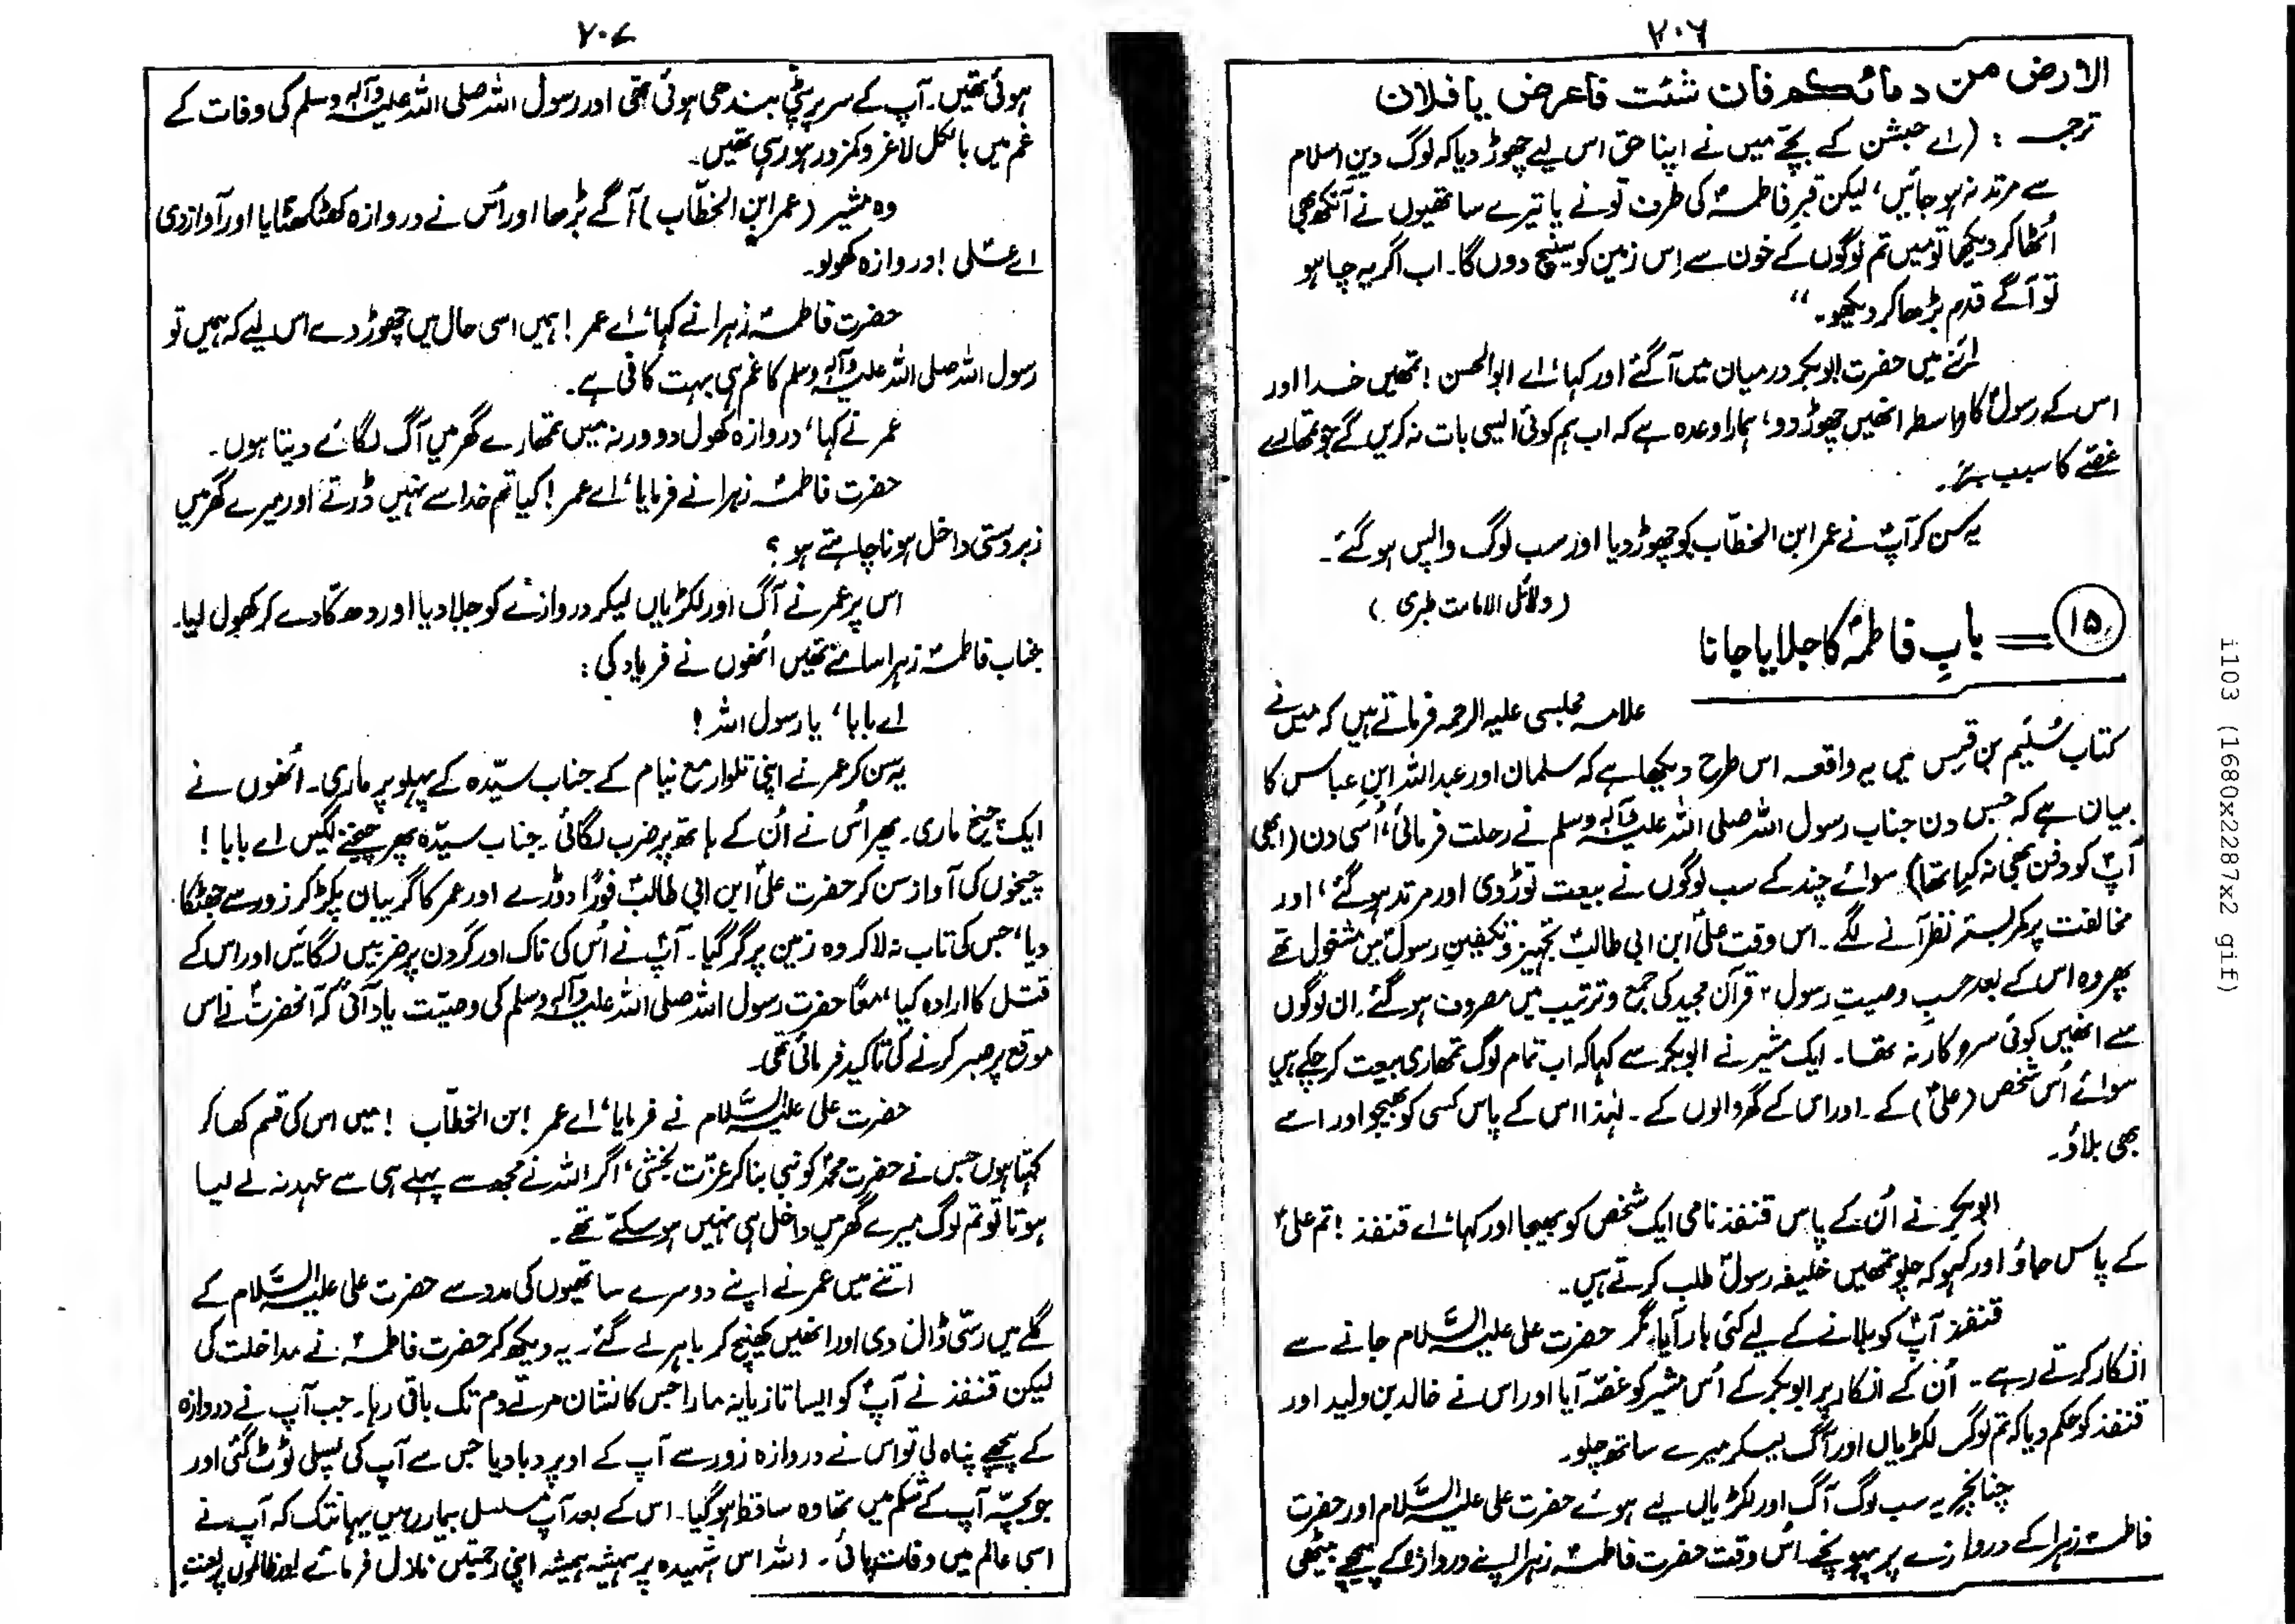 ۲۰۶
الارض من دمائكم فان شئت فاعرض يا فلان
ترجمہ : (اے حبشن کے بچّے میں نے اپنا حق اس لیے چھوڑ دیا کہ لوگ دینِ اسلام
سے مرتد نہ ہو جائیں، لیکن قبرِ فاطمہؑ کی طرف تُو نے یا تیرے ساتھیوں نے آنکھ بھی
اُٹھا کر دیکھا تو میں تم لوگوں کے خون سے اِس زمین کو سینچ دوں گا۔ اب اگر یہ چاہو
تو آگے قدم بڑھا کر دیکھو۔“
اتنے میں حضرت ابوبکر درمیان میں آ گئے اور کہا، اے ابوالحسن! تمھیں خدا اور
اس کے رسولؐ کا واسطہ انھیں چھوڑ دو، ہمارا وعدہ ہے کہ اب ہم کوئی ایسی بات نہ کریں گے جو تمھارے
غصّے کا سبب بنے۔
یہ سُن کر آپؑ نے عمر ابن الخطّاب کو چھوڑ دیا اور سب لوگ واپس ہو گئے۔
(دلائل الامامت طبری)
۱۵ = بابِ فاطمہؑ کا جلایا جانا
علامہ مجلسی علیہ الرحمہ فرماتے ہیں کہ میں نے
کتاب سُلَیم بن قیس میں یہ واقعہ اس طرح دیکھا ہے کہ سلمان اور عبداللہ ابنِ عباس کا
بیان ہے کہ جس دن جناب رسول اللہ صلی اللہ علیہ وآلہ وسلم نے رحلت فرمائی، اُسی دن (ابھی
آپؐ کو دفن بھی نہ کیا تھا) سوائے چند کے سب لوگوں نے بیعت توڑ دی اور مرتد ہو گئے، اور
مخالفت پر کمربستہ نظر آنے لگے۔ اس وقت علیؑ ابن ابی طالبؑ تجہیز و تکفینِ رسولؐ میں مشغول تھے
پھر وہ اس کے بعد حسبِ وصیتِ رسولؐ قرآن مجید کی جمع و ترتیب میں مصروف ہو گئے۔ ان لوگوں
سے انھیں کوئی سروکار نہ تھا۔ ایک مشیر نے ابوبکر سے کہا کہ اب تمام لوگ تمھاری بیعت کر چکے ہیں
سوائے اُس شخص (علیؑ) کے۔ اور اس کے گھر والوں کے۔ لہٰذا اس کے پاس کسی کو بھیجو اور اسے
بھی بلاؤ۔
ابوبکر نے اُن کے پاس قنفذ نامی ایک شخص کو بھیجا اور کہا، اے قنفذ! تم علیؑ
کے پاس جاؤ اور کہو کہ چلو تمھیں خلیفہ رسولؐ طلب کرتے ہیں۔
قنفذ آپؑ کو بلانے کے لیے کئی بار آیا، مگر حضرت علی علیہ السَّلام جانے سے
انکار کرتے رہے۔ اُن کے انکار پر ابوبکر کے اُس مشیر کو غصّہ آیا اور اس نے خالد بن ولید اور
قنفذ کو حکم دیا کہ تم لوگ لکڑیاں اور آگ لیکر میرے ساتھ چلو۔
چنانچہ یہ سب لوگ آگ اور لکڑیاں لیے ہوئے حضرت علی علیہ السَّلام اور حضرت
فاطمہؑ زہرا کے دروازے پر پہونچے۔ اُس وقت حضرت فاطمہؑ زہرا اپنے دروازہ کے پیچھے بیٹھی
۲۰۷
ہوئی تھیں۔ آپ کے سر پر پٹّی بندھی ہوئی تھی اور رسول اللہ صلی اللہ علیہ وآلہ وسلم کی وفات کے
غم میں بالکل لاغر و کمزور ہو رہی تھیں۔
وہ مشیر (عمر ابن الخطّاب) آگے بڑھا اور اُس نے دروازہ کھٹکھٹایا اور آواز دی
اے علی! دروازہ کھولو۔
حضرت فاطمہؑ زہرا نے کہا، اے عمر! ہمیں اسی حال میں چھوڑ دے اس لیے کہ ہمیں تو
رسول اللہ صلی اللہ علیہ وآلہ وسلم کا غم ہی بہت کافی ہے۔
عمر نے کہا، دروازہ کھول دو ورنہ میں تمھارے گھر میں آگ لگائے دیتا ہوں۔
حضرت فاطمہؑ زہرا نے فرمایا، اے عمر! کیا تم خدا سے نہیں ڈرتے اور میرے گھر میں
زبردستی داخل ہونا چاہتے ہو؟
اس پر عمر نے آگ اور لکڑیاں لیکر دروازے کو جلا دیا اور دھکّا دے کر کھول لیا۔
جناب فاطمہؑ زہرا سامنے تھیں اُنھوں نے فریاد کی:
اے بابا، یا رسول اللہ!
یہ سن کر عمر نے اپنی تلوار مع نیام کے جناب سیّدہ کے پہلو پر ماری۔ اُنھوں نے
ایک چیخ ماری۔ پھر اُس نے اُن کے ہاتھ پر ضرب لگائی۔ جناب سیّدہ پھر چیخنے لگیں اے بابا!
چیخوں کی آواز سن کر حضرت علیؑ ابن ابی طالبؑ فوراً دوڑے اور عمر کا گریبان پکڑ کر زور سے جھٹکا
دیا، جس کی تاب نہ لا کر وہ زمین پر گر گیا۔ آپؑ نے اُس کی ناک اور گردن پر ضربیں لگائیں اور اس کے
قتل کا ارادہ کیا، معاً حضرت رسول اللہ صلی اللہ علیہ وآلہ وسلم کی وصیّت یاد آئی کہ آنحضرتؐ نے اس
موقع پر صبر کرنے کی تاکید فرمائی تھی۔
حضرت علی علیہ السَّلام نے فرمایا، اے عمر ابن الخطّاب! میں اس کی قسم کھا کر
کہتا ہوں جس نے حضرت محمدؐ کو نبی بنا کر عزّت بخشی، اگر اللہ نے مجھ سے پہلے ہی سے عہد نہ لے لیا
ہوتا تو تم لوگ میرے گھر میں داخل ہی نہیں ہو سکتے تھے۔
اتنے میں عمر نے اپنے دوسرے ساتھیوں کی مدد سے حضرت علی علیہ السَّلام کے
گلے میں رسّی ڈال دی اور انھیں کھینچ کر باہر لے گئے۔ یہ دیکھ کر حضرت فاطمہؑ نے مداخلت کی
لیکن قنفذ نے آپؑ کو ایسا تازیانہ مارا جس کا نشان مرتے دم تک باقی رہا۔ جب آپ نے دروازہ
کے پیچھے پناہ لی تو اس نے دروازہ زور سے آپ کے اوپر دبا دیا جس سے آپ کی پسلی ٹوٹ گئی اور
جو بچّہ آپ کے شکم میں تھا وہ ساقط ہو گیا۔ اس کے بعد آپ مسلسل بیمار رہیں یہانتک کہ آپ نے
اسی عالم میں وفات پائی۔ اللہ اس شہیدہ پر ہمیشہ ہمیشہ اپنی رحمتیں نازل فرمائے اور ظالموں پر لعنت
i103 (1680x2287x2 gif)